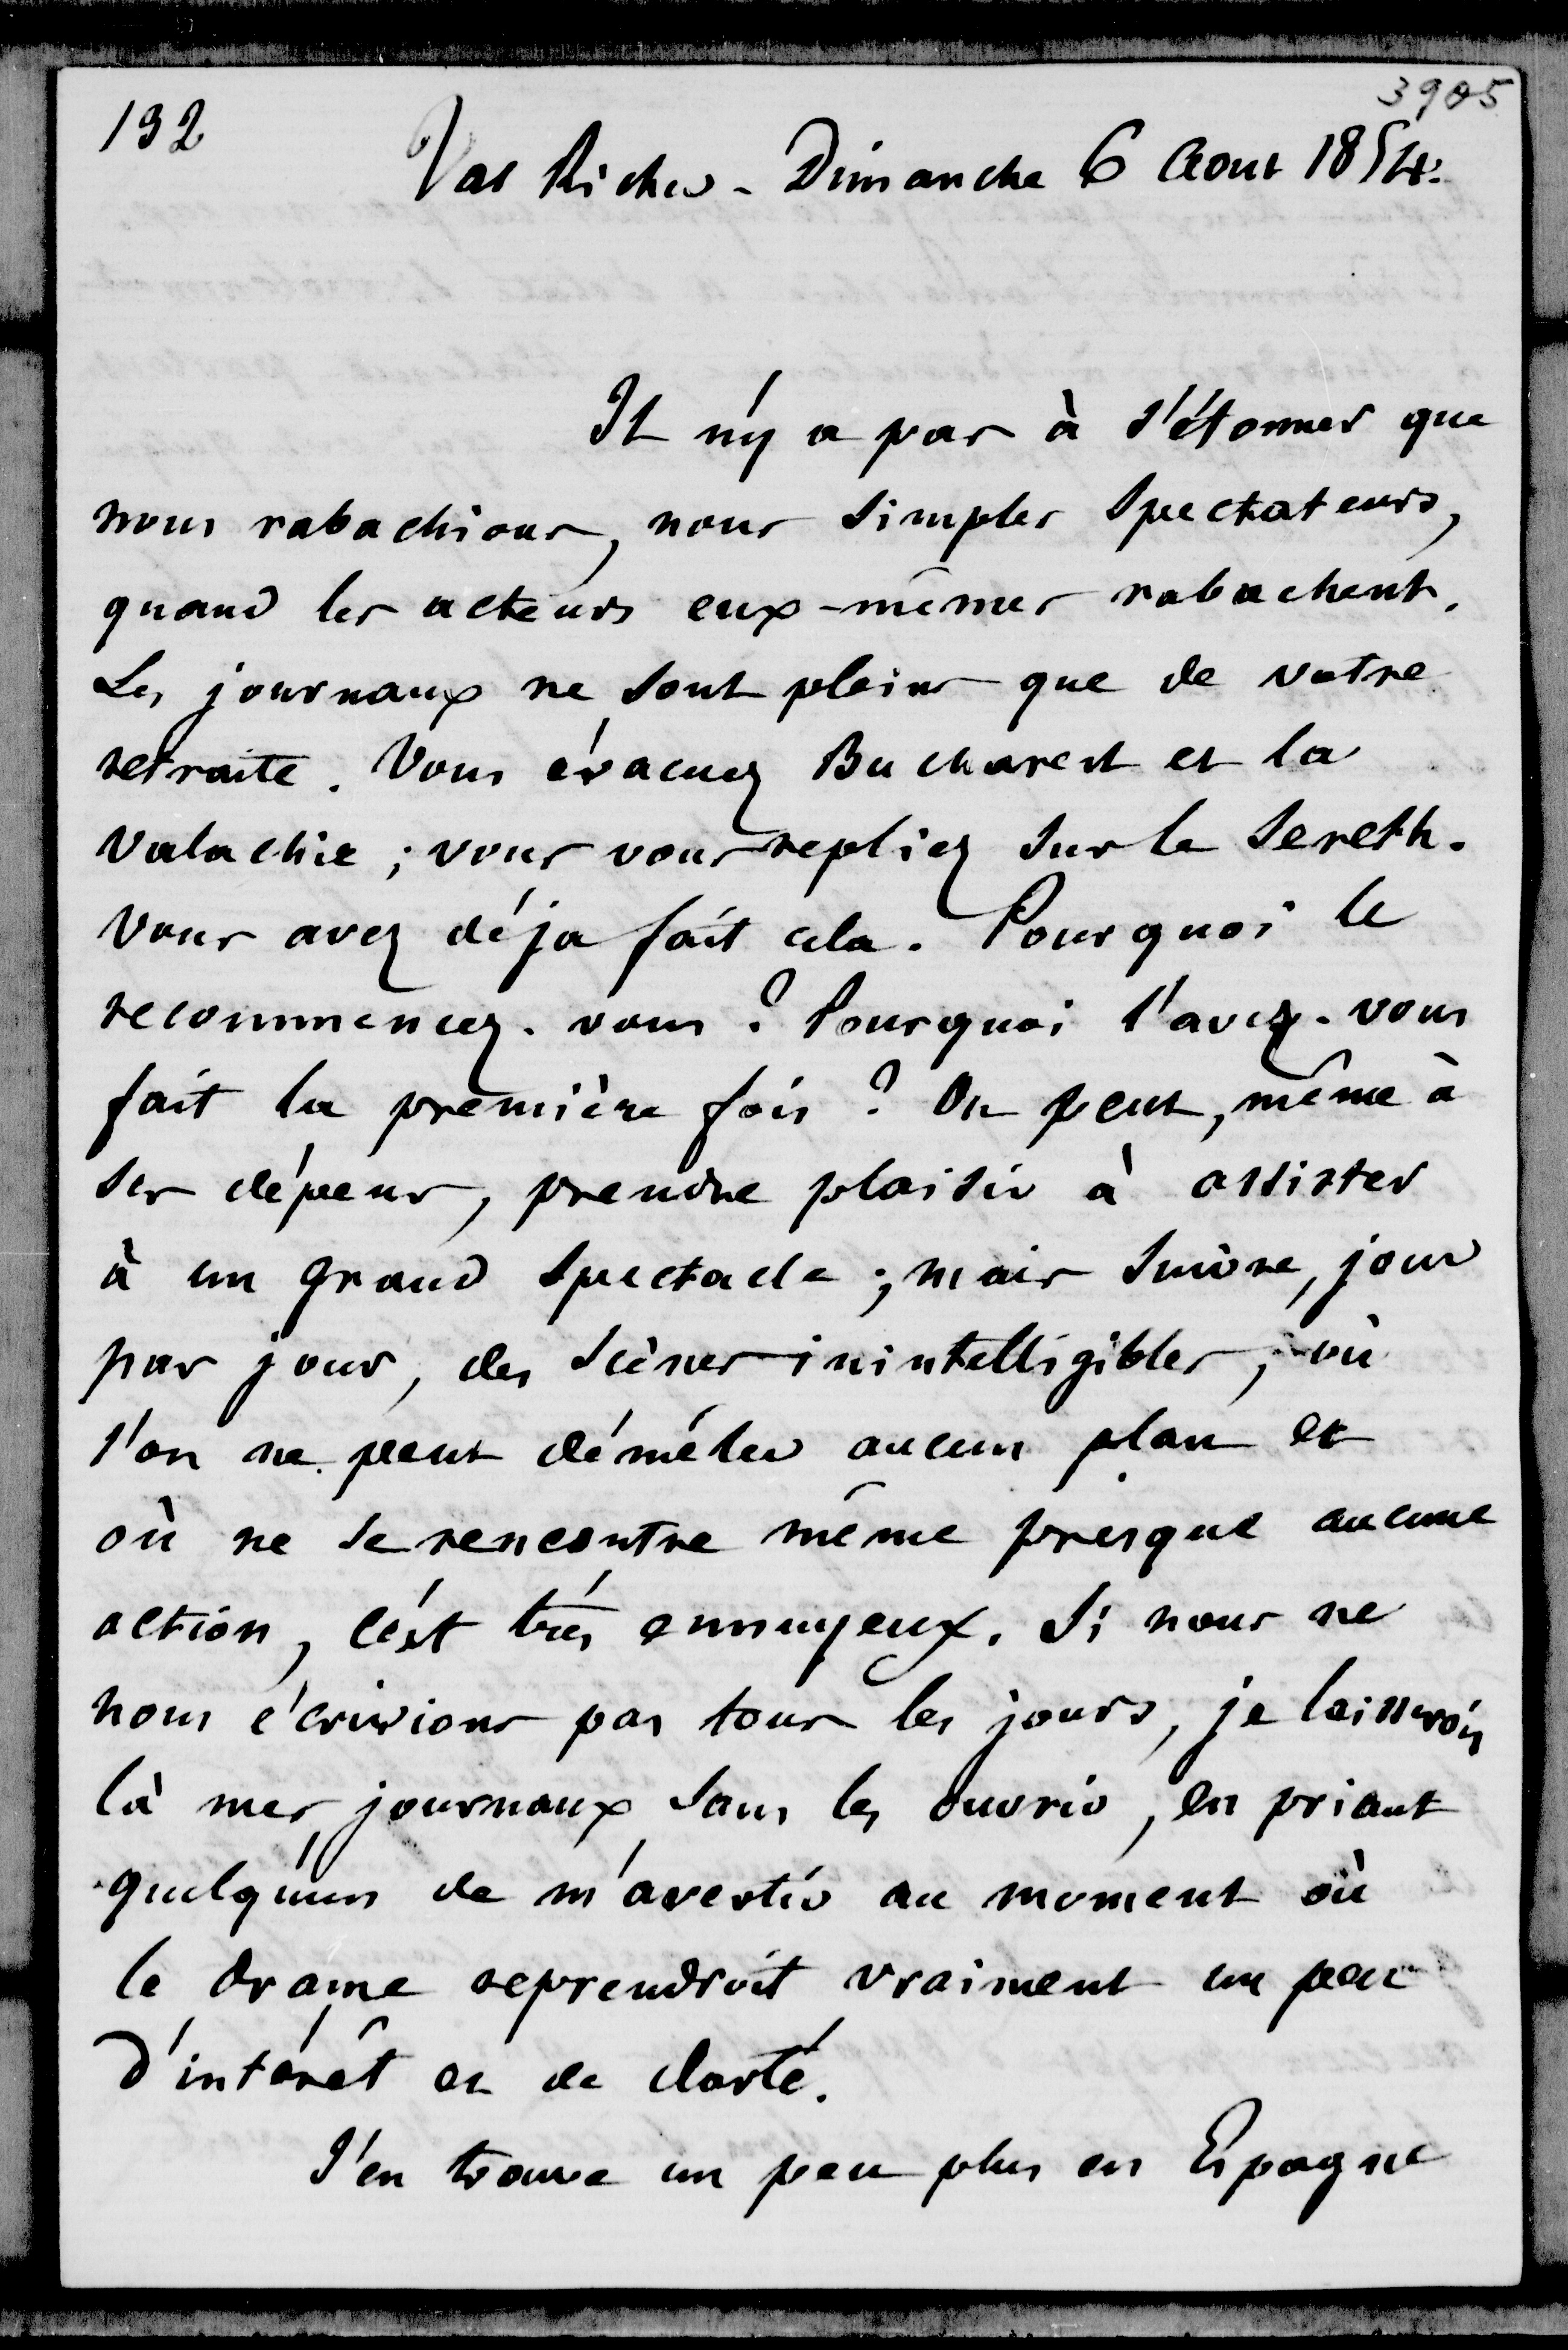 3905
132
Val Richer - Dimanche 6 Aout 1854.
Il n'y a pas à s'étonner que
nous rabachions, nous simples spectateurs,
quand les acteurs eux-mêmes rabachent.
Les journaux ne sont pleins que de votre
retraite. Vous évacuez Bucharest et la
Valachie ; vous vous repliez sur le Sereth.
Vous avez déja fait cela. Pourquoi le
recommencez-vous ? Pourquoi l'avez-vous
fait la première fois ? On peut, même à
ses dépens, prendre plaisir à assister
à un grand spectacle ; mais suivre, jour
par jour, des scènes inintelligibles, où
l'on ne peut démêler aucun plan et
où ne se rencontre même presque aucune
action, c'est très ennuyeux. Si nous ne
nous écrivions pas tous les jours, je laisserois
là mes journaux sans les ouvrir, en priant
quelqu'un de m'avertir au moment où
le drame reprendroit vraiment un peu
d'intérêt et de clarté.
J'en trouve un peu plus en Espagne